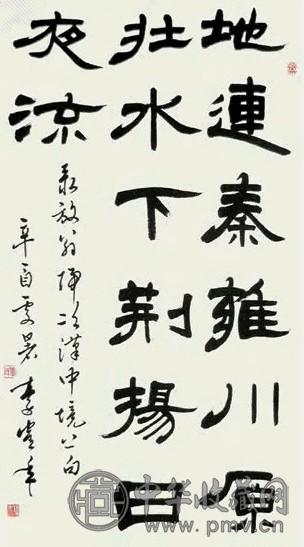 地連秦雍川原
壯水下荊揚日
夜流
录放翁歸次漢中境上句
辛酉處暑 李
中华收藏网
www.pmvi.cn